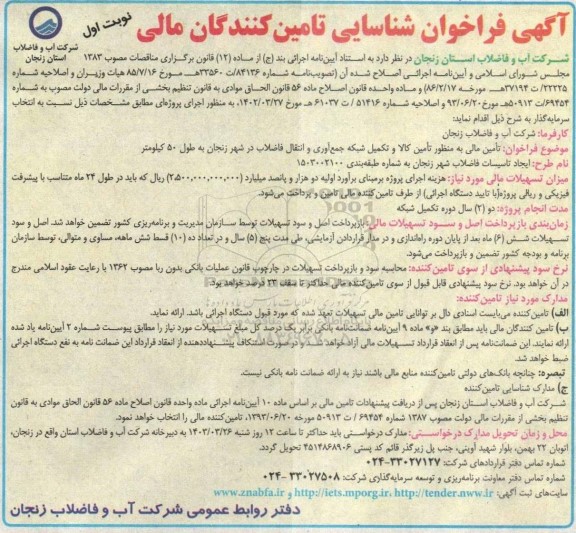 آگهی فراخوان شناسایی تامین‌کنندگان مالی
نوبت اول
شرکت آب و فاضلاب
استان زنجان
شرکت آب و فاضلاب استان زنجان در نظر دارد به استناد آیین‌نامه اجرائی بند (ج) از ماده (۱۲) قانون برگزاری مناقصات مصوب ۱۳۸۳
مجلس شورای اسلامی و آیین‌نامه اجرائی اصلاح شده آن (تصویب‌نامه شماره ۸۴۱۳۶/ت۳۳۵۶۰هـ مورخ ۸۵/۷/۱۶ هیات وزیران و اصلاحیه شماره
۲۲۲۲۵/ت ۳۷۱۹۴هـ مورخه ۸۶/۲/۱۷) و ماده واحده قانون اصلاح ماده ۵۶ قانون الحاق موادی به قانون تنظیم بخشی از مقررات مالی دولت به شماره
۶۹۴۵۴/ت۵۰۹۱۳هـ مورخ ۹۳/۰۶/۲۰ و اصلاحیه شماره ۵۱۴۱۶ / ت ۶۱۰۳۷ هـ مورخ ۱۴۰۲/۰۳/۲۷، به منظور اجرای پروژه‌ای مطابق مشخصات ذیل نسبت به انتخاب
سرمایه‌گذار به شرح ذیل اقدام نماید:
کارفرما: شرکت آب و فاضلاب زنجان
موضوع فراخوان: تأمین مالی به منظور تأمین کالا و تکمیل شبکه جمع‌آوری و انتقال فاضلاب در شهر زنجان به طول ۵۰ کیلومتر
نام طرح: ایجاد تاسیسات فاضلاب شهر زنجان به شماره طبقه‌بندی ۱۵۰۳۰۰۲۱۰۰
میزان تسهیلات مالی مورد نیاز: هزینه اجرای پروژه برمبنای برآورد اولیه دو هزار و پانصد میلیارد (۲,۵۰۰,۰۰۰,۰۰۰,۰۰۰) ریال که باید در طول ۲۴ ماه متناسب با پیشرفت
فیزیکی و ریالی پروژه(با تایید دستگاه اجرائی) از طرف تامین‌کننده مالی تامین و پرداخت می‌شود.
مدت انجام پروژه: دو (۲) سال دوره تکمیل شبکه
زمان‌بندی بازپرداخت اصل و سـود تسهیلات مالی: بازپرداخت اصل و سود تسهیلات توسط سازمان مدیریت و برنامه‌ریزی کشور تضمین خواهد شد. اصل و سود
تسهیلات شش (۶) ماه بعد از پایان دوره راه‌اندازی و در مدار قراردادن آزمایشی، طی مدت پنج (۵) سال و در تعداد ده (۱۰) قسط شش ماهه، مساوی و متوالی، توسط سازمان
برنامه و بودجه کشور تضمین و بازپرداخت می‌شود.
نرخ سود پیشنهادی از سوی تامین‌کننده: محاسبه سود و بازپرداخت تسهیلات در چارچوب قانون عملیات بانکی بدون ربا مصوب ۱۳۶۲ با رعایت عقود اسلامی مندرج
در آن خواهد بود. نرخ سود پیشنهادی قابل قبول از سوی تامین‌کننده مالی حداکثر تا سقف ۲۳ درصد خواهد بود.
مدارک مورد نیاز تامین‌کننده:
الف) تامین‌کننده می‌بایست اسنادی دال بر توانایی تامین مالی تسهیلات تعهد شده که مورد قبول دستگاه اجرائی باشد. ارائه نماید.
ب) تامین کنندگان مالی باید مطابق بند «و» ماده ۹ آیین‌نامه ضمانت‌نامه بانکی برابر یک درصد کل مبلغ تسهیلات مورد نیاز را مطابق پیوست شماره ۲ آیین‌نامه یاد شده
ارائه نمایند. این ضمانت‌نامه پس از انعقاد قرارداد تسهیلات مالی آزاد خواهد شد و در صورت استنکاف پیشنهاددهنده از انعقاد قرارداد این ضمانت نامه به نفع دستگاه اجرائی
ضبط خواهد شد.
تبصره: چنانچه بانک‌های دولتی تامین‌کننده منابع مالی باشند نیاز به ارائه ضمانت نامه بانکی نیست.
ج) مدارک شناسایی تامین‌کننده
شرکت آب و فاضلاب استان زنجان پس از دریافت پیشنهادات تامین مالی بر اساس ماده ۱۰ آیین‌نامه اجرائی ماده واحده قانون اصلاح ماده ۵۶ قانون الحاق موادی به قانون
تنظیم بخشی از مقررات مالی دولت مصوب ۱۳۸۷ شماره ۶۹۴۵۴ / ت ۵۰۹۱۳ مورخه ۱۳۹۳/۰۶/۲۰، تامین‌کننده مالی را انتخاب خواهد نمود.
محل و زمان تحویل مدارک درخواستـی: مدارک درخواستی باید حداکثر تا ساعت ۱۲ روز شنبه ۱۴۰۳/۰۳/۲۶ به دبیرخانه شرکت آب و فاضلاب استان واقع در زنجان،
اتوبان ۲۲ بهمن، بلوار شهید آوینی، جنب پل زیرگذر قائم کد پستی ۴۵۱۴۸۶۸۹۰۶ تحویل گردد.
شماره تماس دفتر قراردادهای شرکت: ۳۳۰۲۷۱۲۷-۰۲۴
شماره تماس دفتر معاونت برنامه‌ریزی و توسعه سرمایه‌گذاری شرکت: ۳۳۰۲۷۵۰۸ -۰۲۴
سایت‌های ثبت آگهی: http://iets.mporg.ir، http://tender.nww.ir و www.znabfa.ir
دفتر روابط عمومی شرکت آب و فاضلاب زنجان